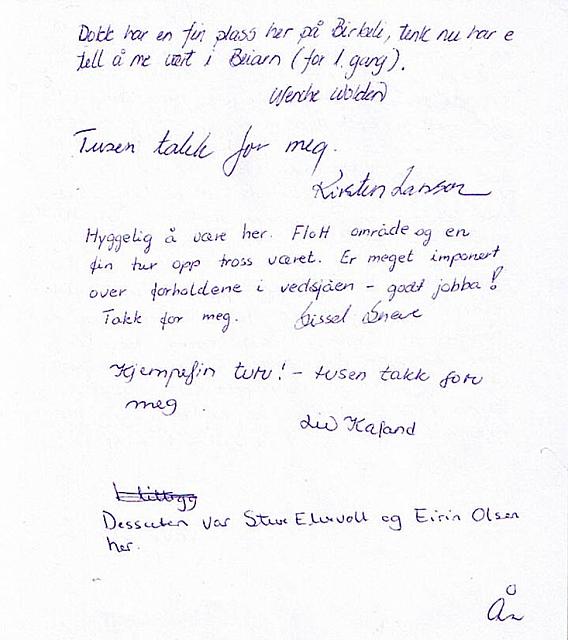 Dokk har en fin plass her på Birkeli, tenk nu har e
tell å me vært i Beiarn (for 1. gang).
Wenche Wolden
Tusen takk for meg.
Kirsten Larsen
Hyggelig å være her. Flott område og en
fin tur opp tross været. Er meget imponert
over forholdene i vedsjåen - godt jobba!
Takk for meg. Sissel
Kjempefin turv! - tusen takk forv
meg
Liv Kafand
Dessuten var Stur og Eirin Olsen
her.